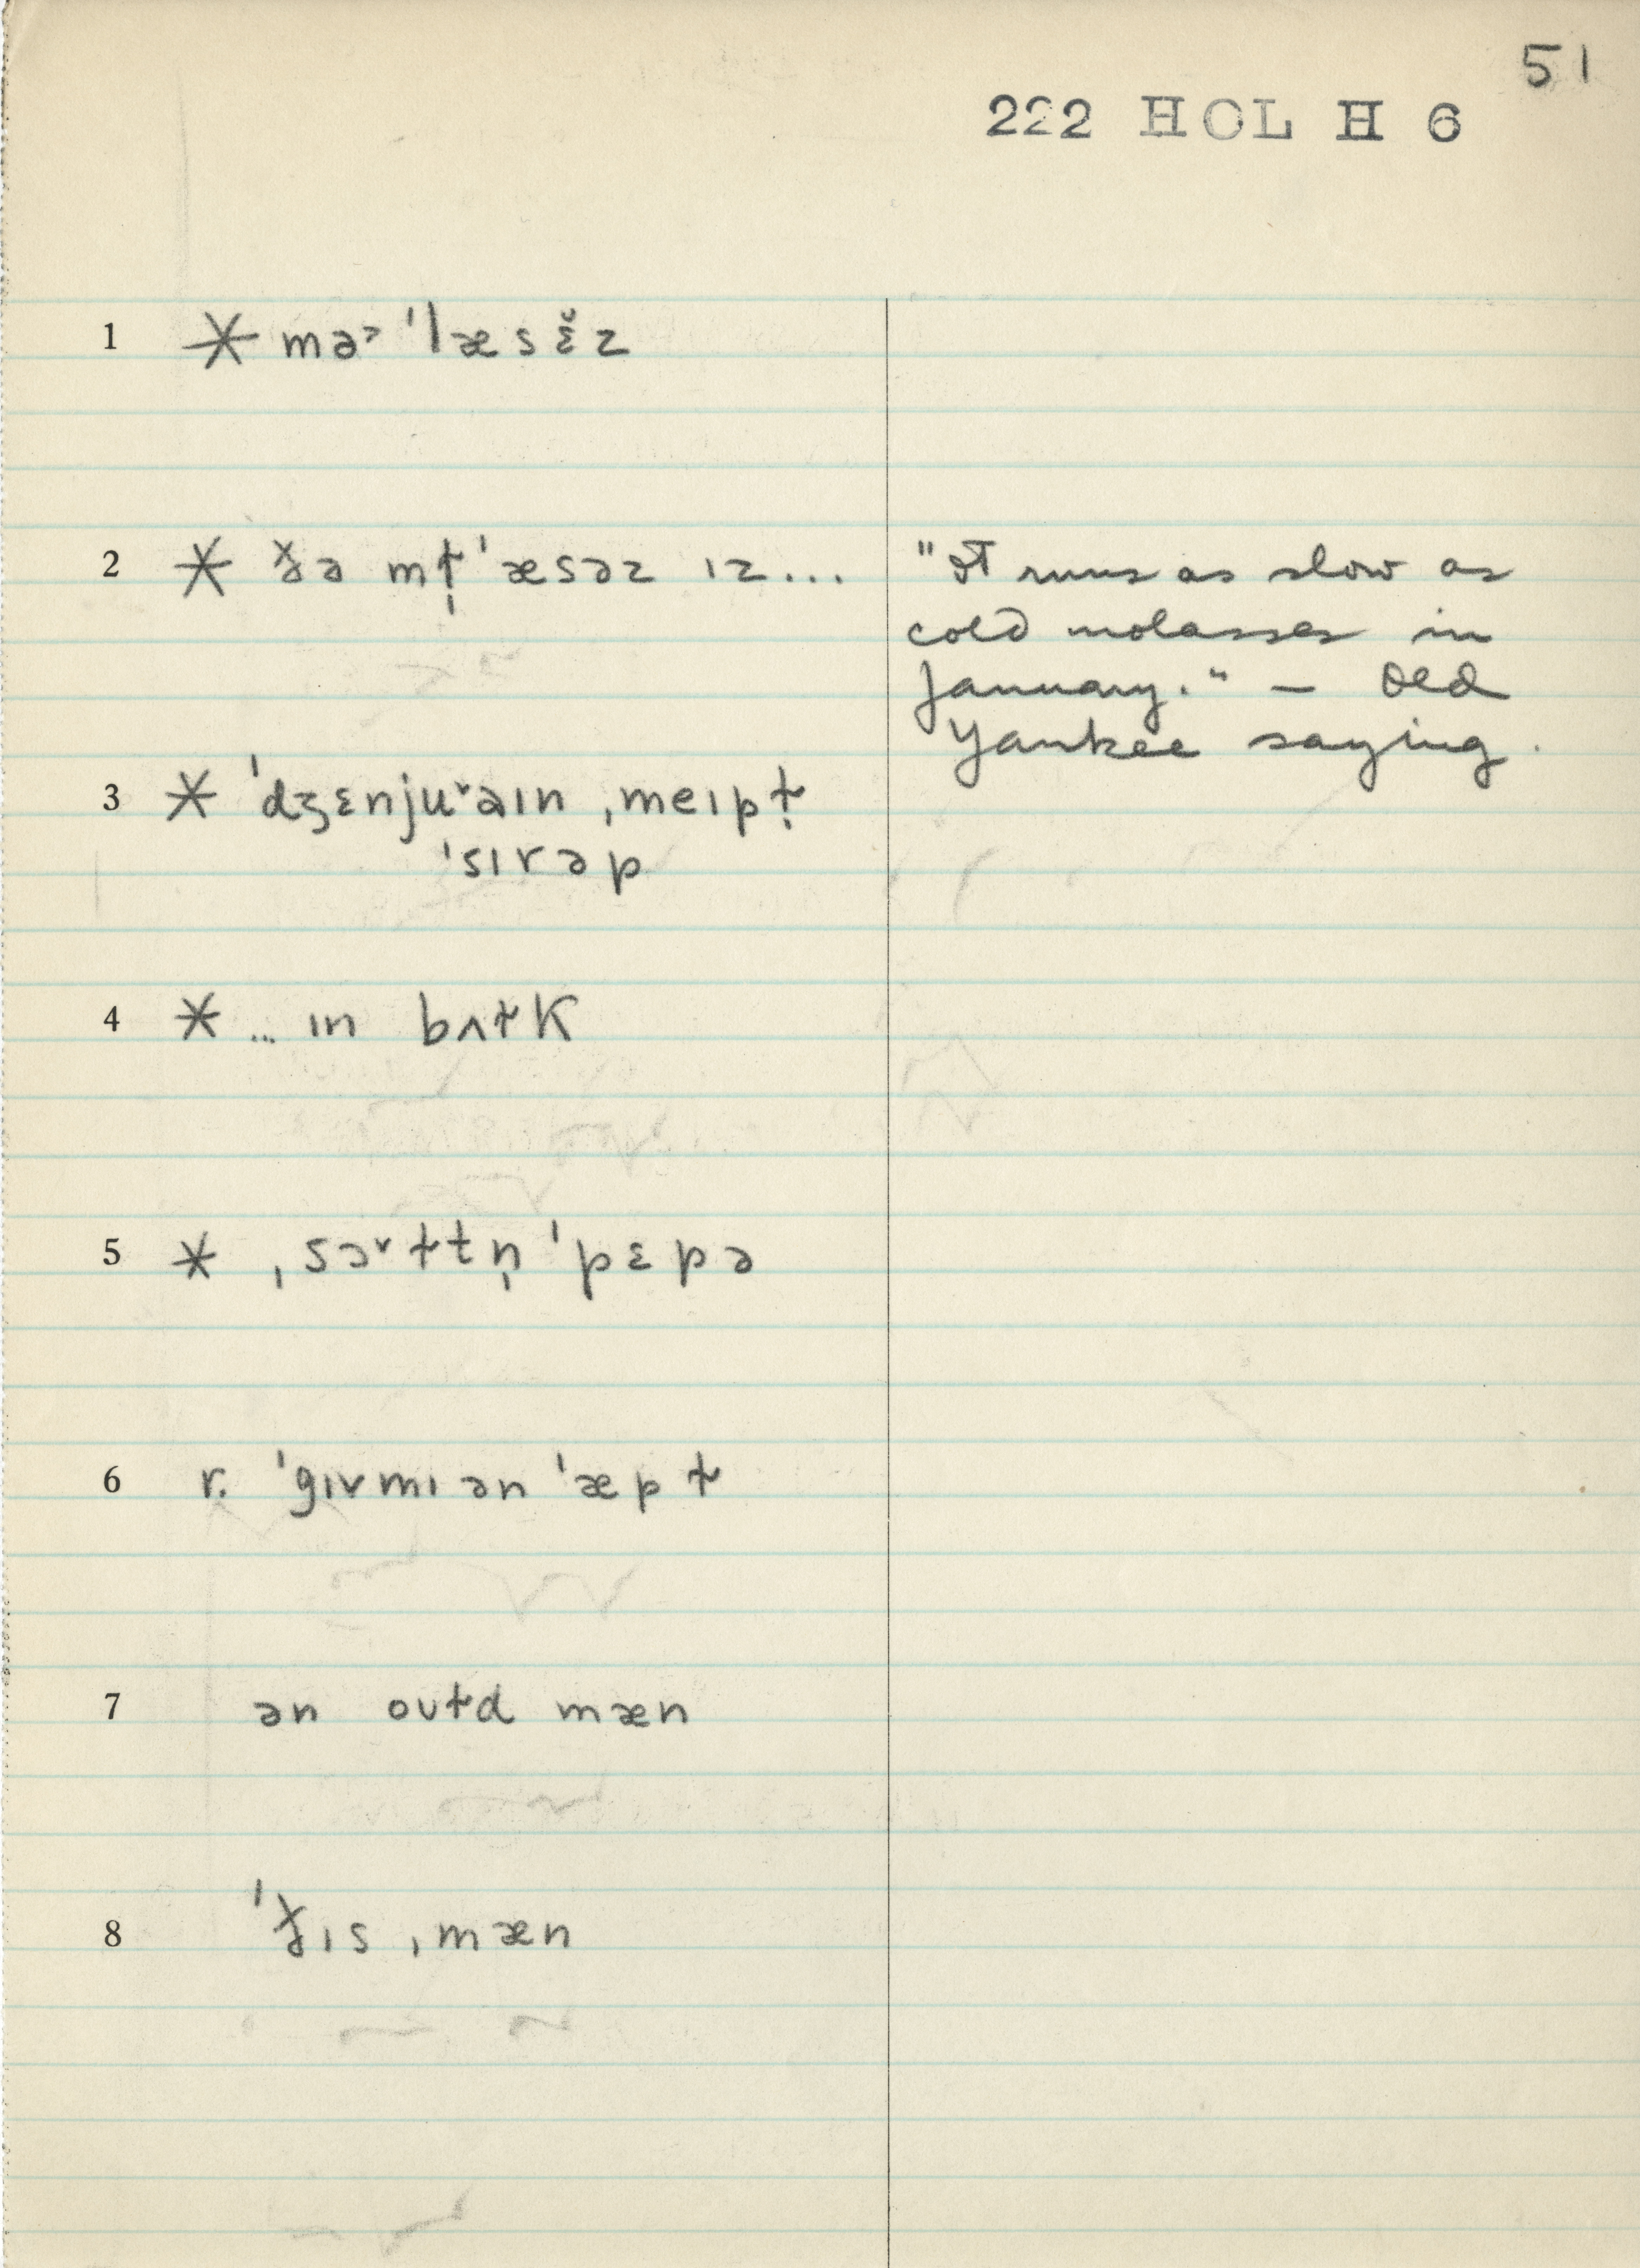 51
222 HOL H 6
1 * mə˃ ˈlæsɛ̆z
2 * ðə mɫ̩ˈæsəz ɪz...
"It runs as slow as
cold molasses in
January." — Old
Yankee saying.
3 * ˈdʒɛnjuˇaɪn ˌmeɪpɫ̩
ˈsɪrəp
4 * ... ɪn bʌɫk
5 * ˌsɔˇɫtn̩ ˈpɛpə
6 r. ˈgɪvmɪ ən ˈæpɫ
7 ən oʊɫd mæn
8 ˈðɪs ˌmæn